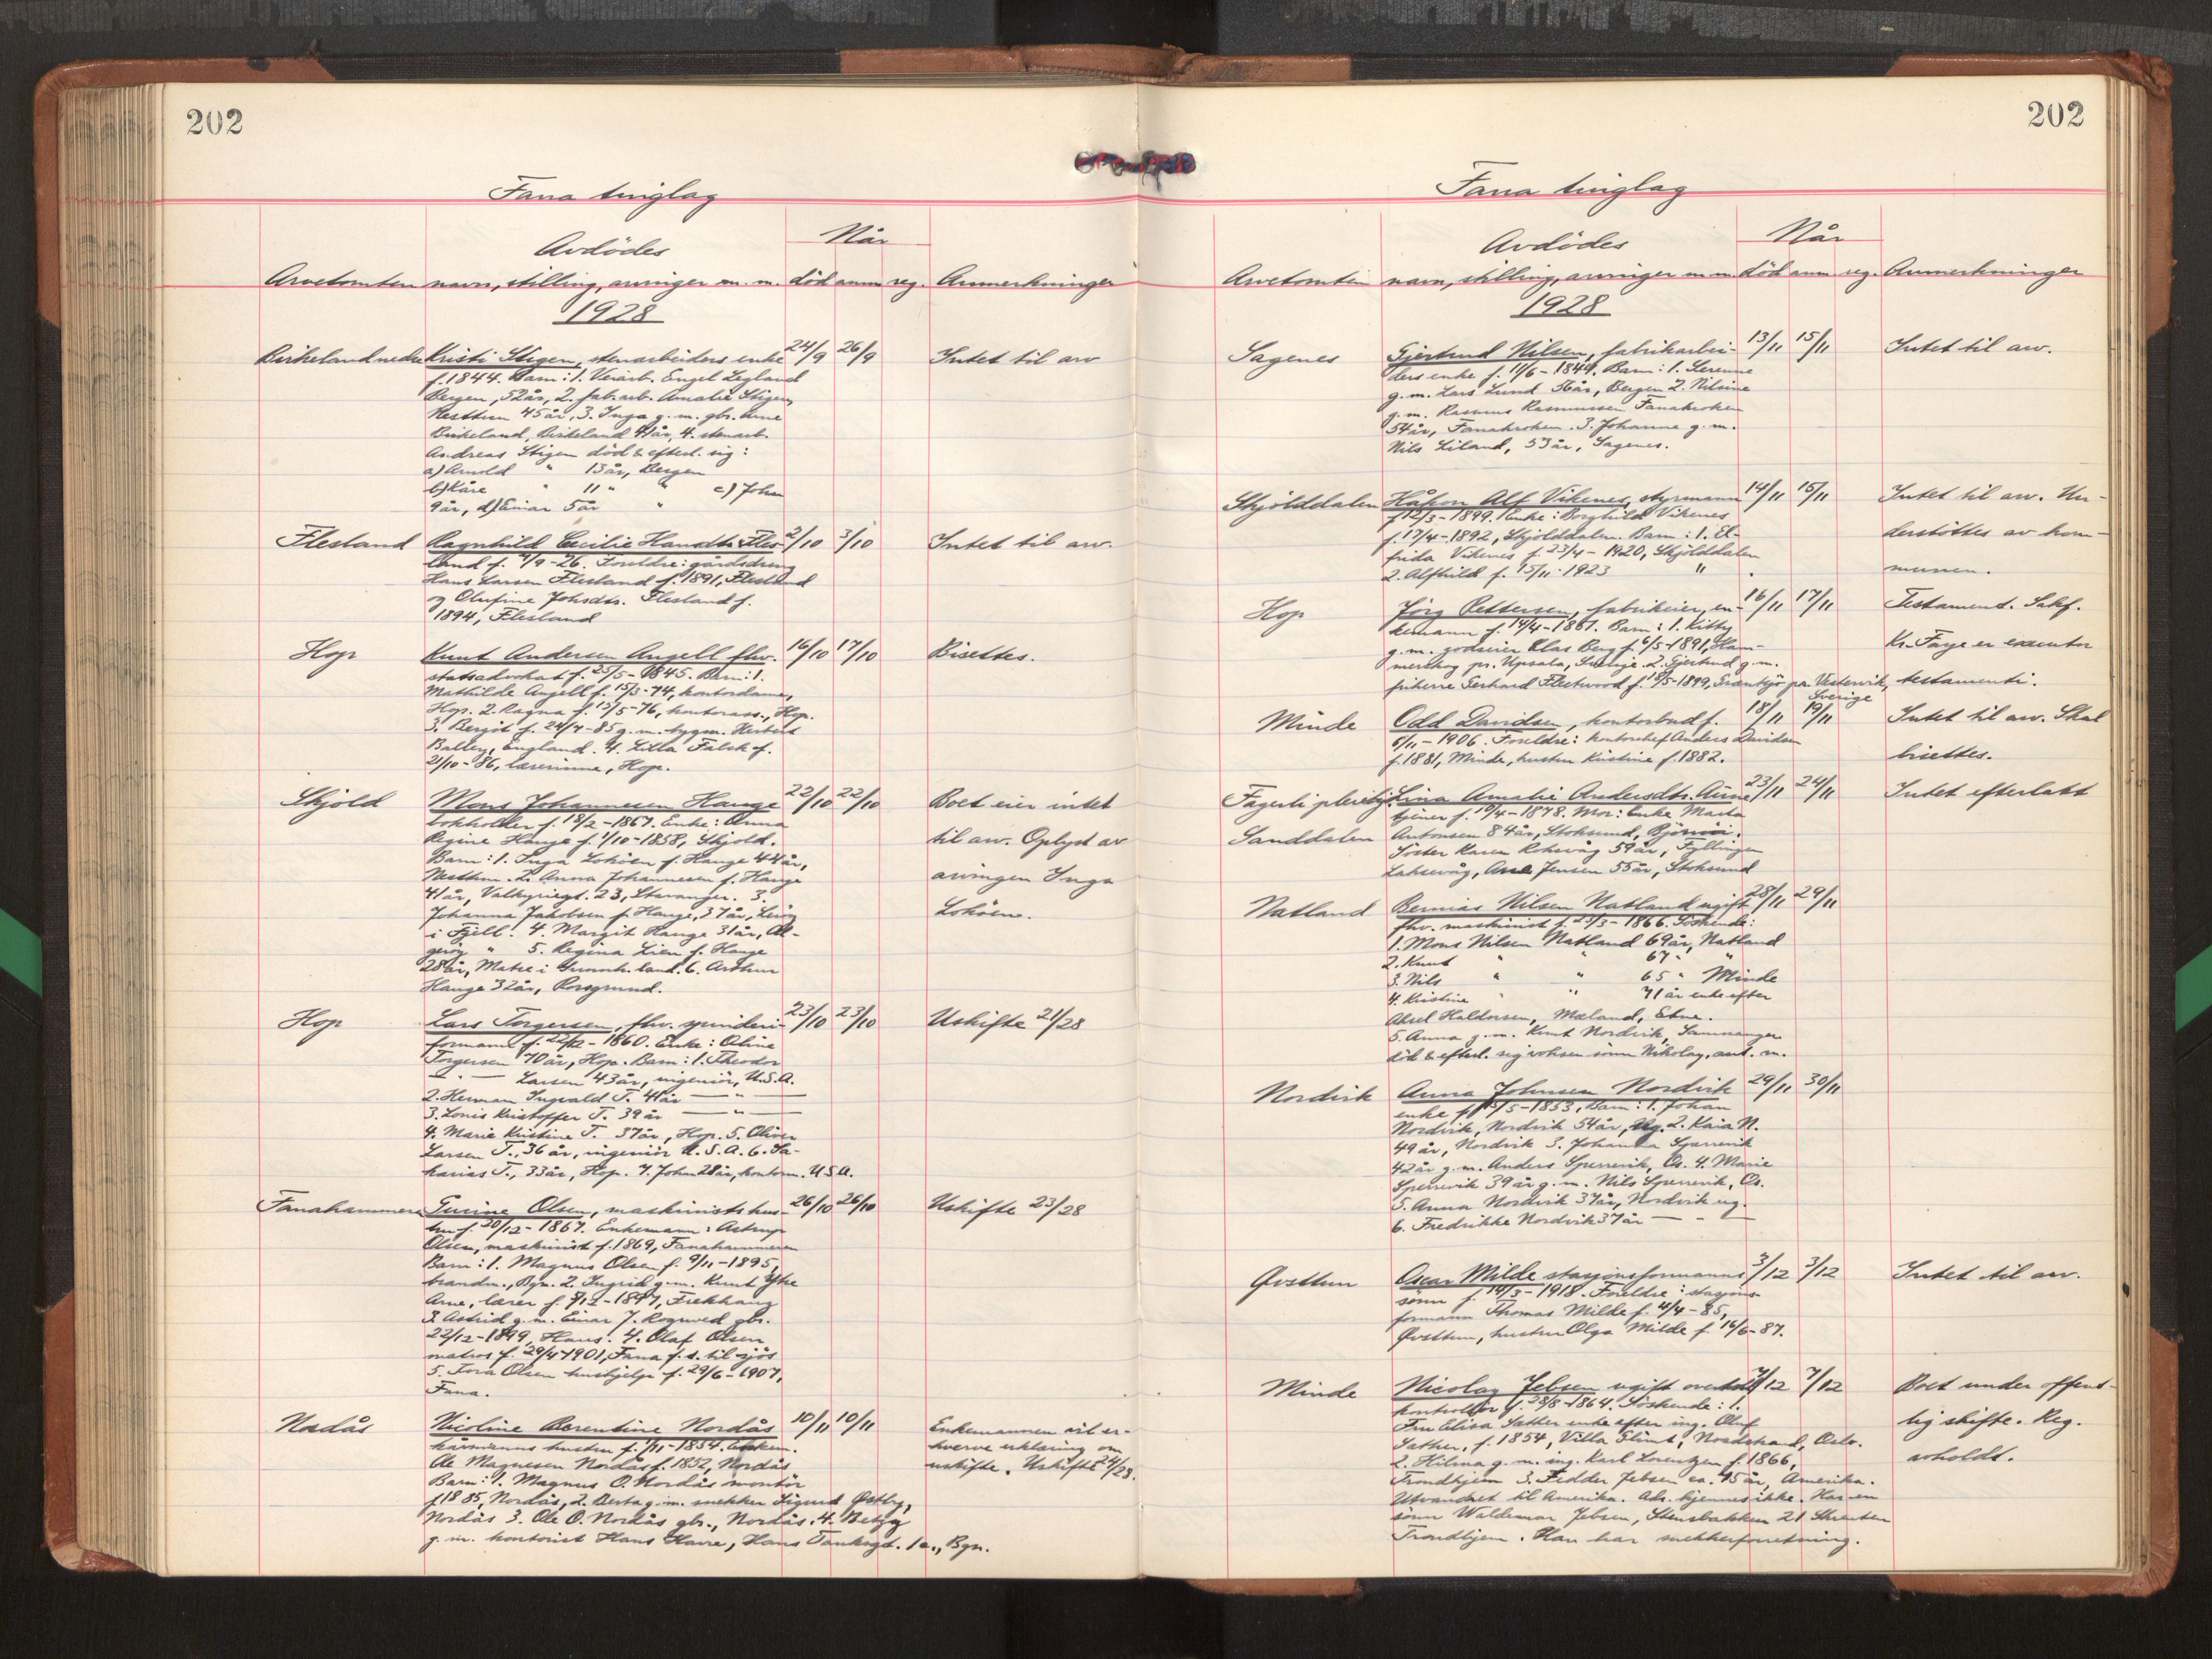 202
Fana tinglag
Avdödes
Når
Arvetomten navn, stilling, arvinger m. m. död anm reg. Anmerkninger
1928
Birkeland nedre Kristi Stigen, stenarbeiders enke 24/9 26/9 Intet til arv
f. 1844. Barn: 1. Veiarb. Engel Legland
Bergen, 52 år, 2. fab.arb. Amalie Stigen,
Nesttun 45 år, 3. Inga g. m. gbr. Arne
Birkeland, Birkeland 41 år, 4. stenarb.
Andreas Stigen död & efterl. sig:
a) Arnold " 13 år, Bergen
b) Kåre " 11 " " c) Johan
9 år, d) Einar 5 år "
Flesland Ragnhild Cecilie Hansdtr. Fles- 2/10 3/10 Intet til arv.
land f. 4/9-26. Foreldre: gårdsdreng
Hans Larsen Flesland f. 1891, Flesland
og Olufine Johsdtr. Flesland f.
1894, Flesland
Hop Knut Andersen Angell fhv. 16/10 17/10 Bisettes.
statsadvokat f. 25/5-1845. Barn: 1.
Mathilde Angell f. 15/3-74, kontordame,
Hop. 2. Ragna f. 15/5-76, kontorass., Hop.
3. Bergit f. 24/4-85 g. m. bygm. Herbert
Balley, England. 4. Lilla Falck f.
21/10-86, lærerinne, Hop.
Skjold Mons Johannesen Hauge 22/10 22/10 Boet eier intet
bokholder f. 18/2-1867. Enke: Anna
Regine Hauge f. 1/10-1858, Skjold. til arv. Oplyst av
Barn: 1. Inga Loköen f. Hauge 44 år,
Nesttun. 2. Anna Johannesen f. Hauge arvingen Inga
41 år, Valkyriegt. 23, Stavanger. 3.
Johanna Jakobsen f. Hauge, 37 år, Leröy Loköen.
i Fjell. 4. Margit Hauge 31 år, Al-
geröy " 5. Regina Lien f. Hauge
28 år, Matre i Sunnh.land. 6. Arthur
Hauge 32 år, Porsgrund.
Hop Lars Torgersen, fhv. spinderi- 23/10 23/10 Uskifte 21/28
formann f. 22/12-1860. Enke: Oline
Torgersen 70 år, Hop. Barn: 1. Theodor
— " — Larsen 43 år, ingeniör, U.S.A.
2. Herman Ingvald T. 41 år — " —
3. Lonis Kristoffer T. 39 år — " —
4. Marie Kristine T. 37 år, Hop. 5. Oliver
Larsen T., 36 år, ingeniör U.S.A. 6. Sa-
karias T., 33 år, Hop. 7. John 28 år, kontorm. U.S.A.
Fanahammeren Turine Olsen, maskinists hus- 26/10 26/10 Uskifte 23/28
tru f. 30/12-1867. Enkemann: Astrup
Olsen, maskinist f. 1869, Fanahammeren
Barn: 1. Magnus Olsen f. 9/11-1895,
brandm., Bgn. 2. Ingrid g.m. Knut Ytre
Arne, lærer f. 7/12-1897, Trekhaug
3. Astrid g. m. Einar J. Rognved gbr.
22/12-1899, Haus. 4. Olaf Olsen
matros f. 29/4-1901, Fana f. t. til sjös
5. Tora Olsen hushjelp f. 29/6-1907,
Fana.
Nordås Nicoline Berentine Nordås 10/11 10/11 Enkemannen vil er-
kårmanns hustru f. 1/11-1854. Enkem. hverve erklæring om
Ole Magnesen Nordås f. 1852, Nordås uskifte. Uskifte 24/28.
Barn: 1. Magnus O. Nordås montör
f. 1885, Nordås, 2. Berta g.m. snekker Sigurd Østby,
Nordås 3. Ole O. Nordås gbr., Nordås. 4. Betzy
g. m. kontorist Hans Havre, Hans Tanksgt. 1a., Bgn.
202
Fana tinglag
Avdödes
Når
Arvetomten navn, stilling, arvinger m. m. död anm reg. Anmerkninger
1928
Sagenes Gjertrud Nilsen, fabrikarbei- 13/11 15/11 Intet til arv.
ders enke f. 11/6-1844. Barn: 1. Serenne
g. m. Lars Lund 56 år, Bergen 2. Nilsine
g. m. Rasmus Rasmussen Fanakroken
54 år, Fanakroken. 3. Johanne g. m.
Nils Liland, 53 år, Sagenes.
Skjölddalen Håkon Alf Vikenes, styrmann 14/11 15/11 Intet til arv. Un-
f. 12/3-1899. Enke: Borghild Vikenes
f. 17/4-1892, Skjölddalen. Barn: 1. El- derstöttes av kom-
frida Vikenes f. 23/4-1920, Skjölddalen
2. Alfhild f. 15/11-1923 " munen.
Hop Jörg Pettersen, fabrikeier, en- 16/11 17/11 Testament. Sakf.
kemann f. 14/4-1861. Barn: 1. Kitty
g. m. godseier Clas Berg f. 6/5-1891, Ham- Kr. Faye er executor
merskog pr. Upsala, Sverige. 2. Gjertrud g. m.
friherre Gerhard Fleetwood f. 18/5-1899, Grantsjö pr. Västervik, testamenti.
Sverige
Minde Odd Davidsen, kontorbud f. 18/11 19/11 Intet til arv. Skal
8/11-1906. Foreldre: kontorchef Anders Davidsen
f. 1881, Minde, hustru Kristine f. 1882. bisettes.
Fagerli pleiehj. Lina Amalie Andersdtr. Aune 23/11 24/11 Intet efterlatt
tjener f. 10/4-1878. Mor: Enke Marta
Sanddalen Antonsen 84 år, Stoksund, Björnör.
Söster Karen Roksvåg 59 år, Fyllingen
Laksevåg, Ane Jensen 55 år, Stoksund
Natland Bernias Nilsen Natland ugift 28/11 29/11
fhv. maskinist f. 25/3-1866. Söskende:
1. Mons Nilsen Natland 69 år, Natland
2. Knut " " 67 " "
3. Nils " " 65 " Minde
4. Kristine " " 71 år enke efter
Aksel Haldorsen, Mæland, Etne.
5. Anna g. m. Knut Nordvik, Samnanger
död & efterl. sig voksen sönn Nikolay, ant. m.
Nordvik Anna Johnsen Nordvik 29/11 30/11
enke f. 15/5-1853, Barn: 1. Johan
Nordvik, Nordvik 54 år, ug. 2. Kaia N.
49 år, Nordvik 3. Johanna Sperrevik
42 år g. m. Anders Sperrevik, Os. 4. Marie
Sperrevik 39 år g. m. Nils Sperrevik, Os.
5. Anna Nordvik 37 år, Nordvik ug.
6. Fredrikke Nordvik 37 år — " —
Øvsttun Oscar Milde stasjonsformanns 3/12 3/12 Intet til arv.
sönn f. 14/3-1918. Foreldre: stasjons-
formann Thomas Milde f. 4/4-85,
Øvsttun, hustru Olga Milde f. 16/6-87.
Minde Nicolay Jebsen ugift overtoll 7/12 7/12 Boet under offent-
kontrollör f. 28/8-1864. Söskende: 1.
Fru Elisa Sather enke efter ing. Oluf lig skifte. Reg.
Sather, f. 1854, Villa Glimt, Nordstrand, Oslo.
2. Hilma g. m. ing. Karl Lorentzen f. 1866, avholdt.
Trondhjem 3. Fedder Jebsen ca. 75 år, Amerika.
Utvandret til Amerika. Adr. kjennes ikke. Har en
sönn Waldemar Jebsen, Stensbakken 21 Skrenten
Trondhjem. Han har snekkerforretning.